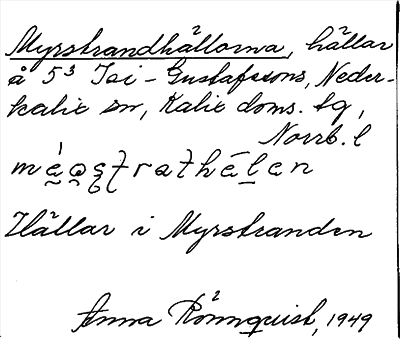 Myrstrandhällorna, hällar
å 5³ Isi-Gustafssons, Neder-
kalix sn, Kalix doms. tg,
Norrb. l
Hällar i Myrstranden
Anna Rönnquist, 1949